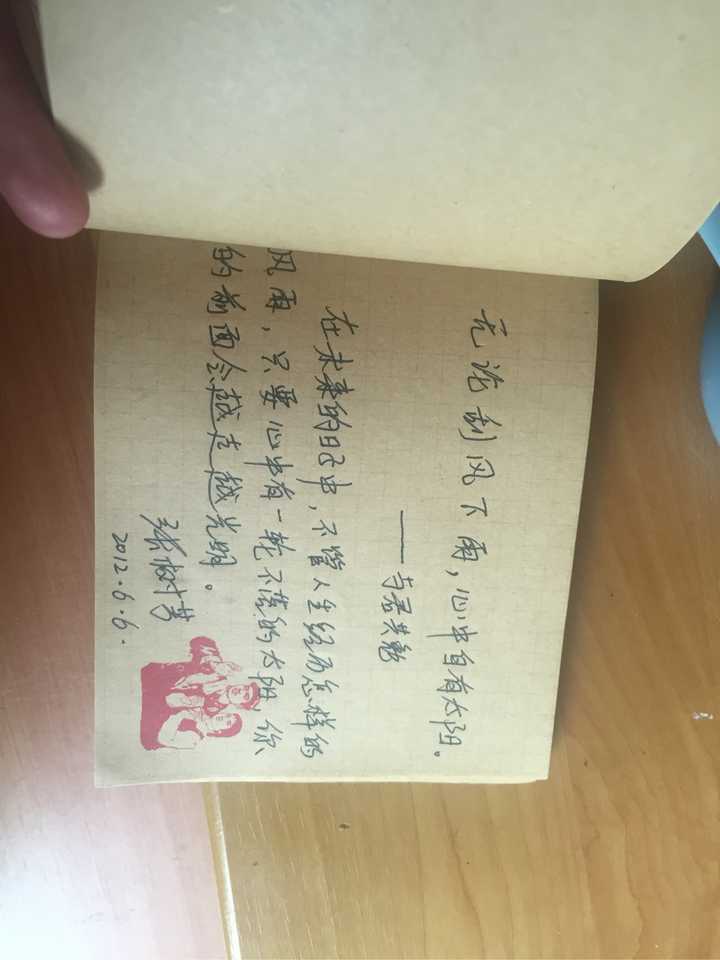 无论刮风下雨，心中自有太阳。
——与君共勉
在未来的日子中，不管人生经历怎样的
风雨，只要心中有一轮不落的太阳，你
的前面会越走越光明。
张树芳
2012.6.6.